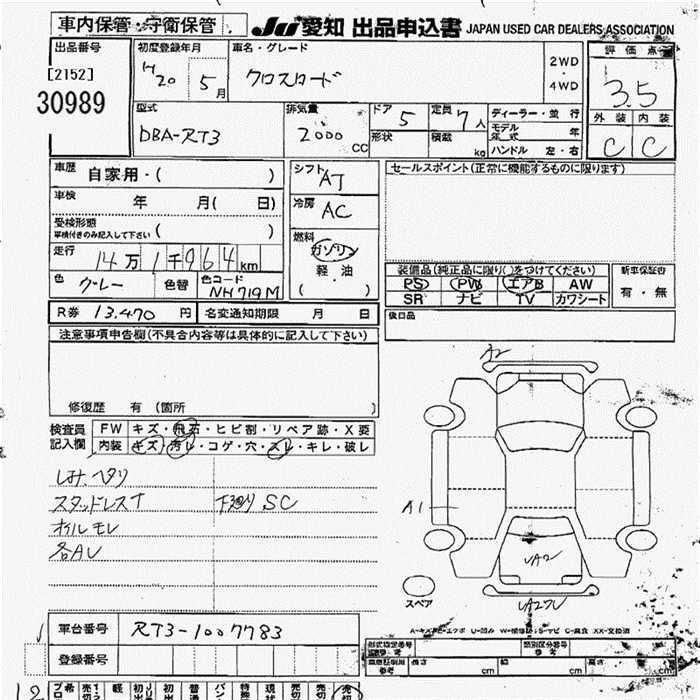 車内保管・守衛保管 JU 愛知 出品申込書 JAPAN USED CAR DEALERS ASSOCIATION
出品番号 初度登録年月 車名・グレード 評価点
[2152] H20 5月 クロスロード 2WD・4WD 3.5
30989
外装 内装
C C
型式 排気量 ドア 5 定員 7人 ディーラー・並行
DBA-RT3 2000 CC 形状 積載 kg モデル年式 年
ハンドル 左・右
車歴 自家用・( ) シフト AT セールスポイント(正常に機能するものに限ります)
車検 年 月( 日) 冷房 AC
受検形態
車検付きのみ記入して下さい ( )
走行 14万1千964km 燃料 ガソリン
軽・油
( )
色 グレー 色替 色コード NH719M
装備品(純正品に限り()をつけてください) 新車保証書
PS PW エアB AW 有・無
SR ナビ TV カワシート
R券 13,470 円 名変通知期限 月 日 後日品
注意事項申告欄(不具合内容等は具体的に記入して下さい)
修復歴 有 (箇所 )
検査員記入欄 FW キズ・飛石・ヒビ割・リペア跡・X要
内装 キズ・汚レ・コゲ・穴・スレ・キレ・破レ
A2
シート ヘタリ
スタッドレスT 下廻り SC
A1
オイルモレ
各AU
UA2
スペア
車台番号 RT3-1007783
登録番号
型式指定番号 類別区分番号
長さ cm 幅 cm 高さ cm